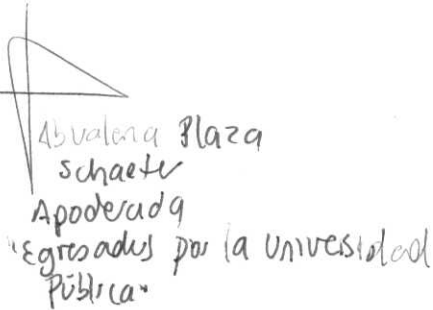 Plaza
Schaefer
Apoderada
"Egresados por la Universidad
Pública"